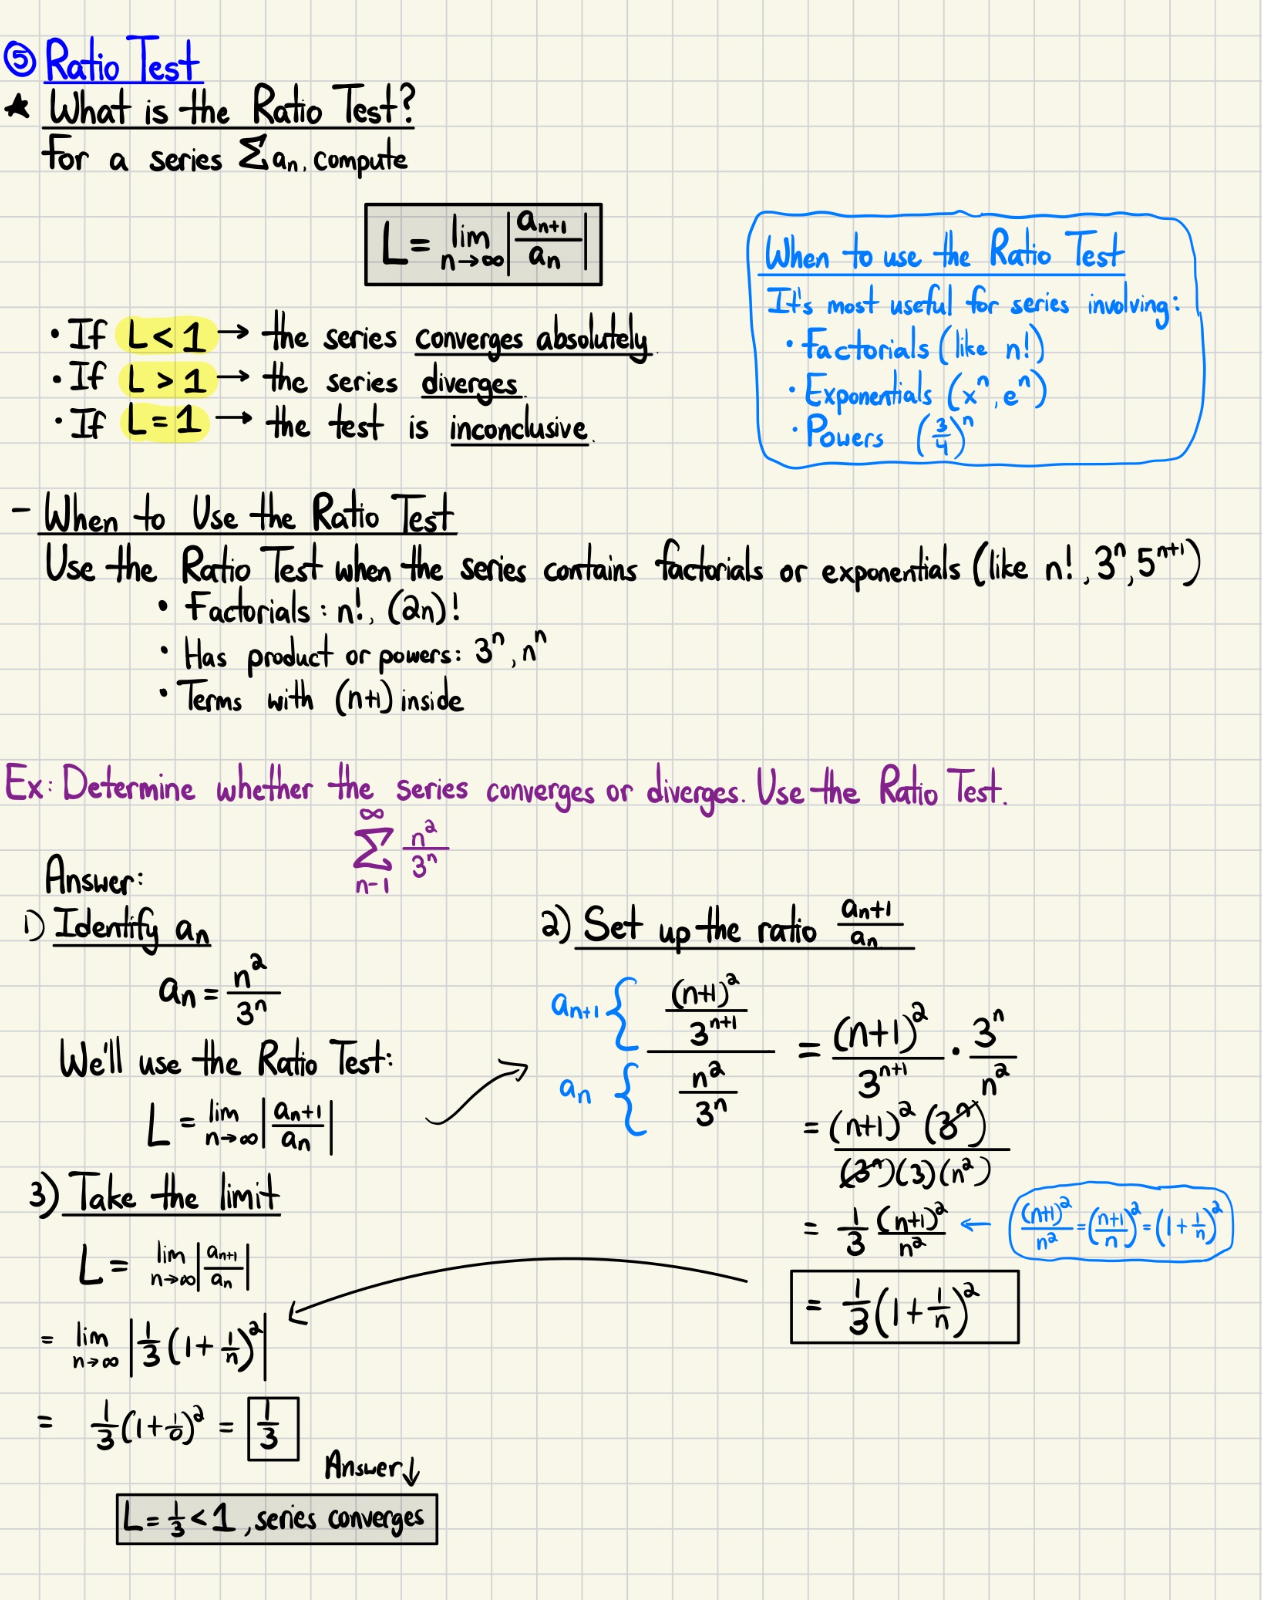 ⑤ Ratio Test
★ What is the Ratio Test?
For a series Σaₙ, compute
L = lim n→∞ |aₙ₊₁/aₙ|
• If L < 1 → the series converges absolutely.
• If L > 1 → the series diverges.
• If L = 1 → the test is inconclusive.
When to use the Ratio Test
It's most useful for series involving:
• Factorials (like n!)
• Exponentials (xⁿ, eⁿ)
• Powers (3/4)ⁿ
- When to Use the Ratio Test
Use the Ratio Test when the series contains factorials or exponentials (like n!, 3ⁿ, 5ⁿ⁺¹)
• Factorials: n!, (2n)!
• Has product or powers: 3ⁿ, nⁿ
• Terms with (n+1) inside
Ex: Determine whether the series converges or diverges. Use the Ratio Test.
∞ Σ n-1 n²/3ⁿ
Answer:
1) Identify aₙ
aₙ = n²/3ⁿ
We'll use the Ratio Test:
L = lim n→∞ |aₙ₊₁/aₙ|
2) Set up the ratio aₙ₊₁/aₙ
aₙ₊₁ { (n+1)²/3ⁿ⁺¹
aₙ { n²/3ⁿ
= (n+1)²/3ⁿ⁺¹ · 3ⁿ/n²
= (n+1)²(3ⁿ)/(3ⁿ)(3)(n²)
= 1/3 (n+1)²/n² ← (n+1)²/n² = (n+1/n)² = (1 + 1/n)²
= 1/3(1 + 1/n)²
3) Take the limit
L = lim n→∞ |aₙ₊₁/aₙ|
= lim n→∞ |1/3 (1 + 1/n)²|
= 1/3(1 + 1/0)² = 1/3
Answer↓
L = 1/3 < 1, series converges